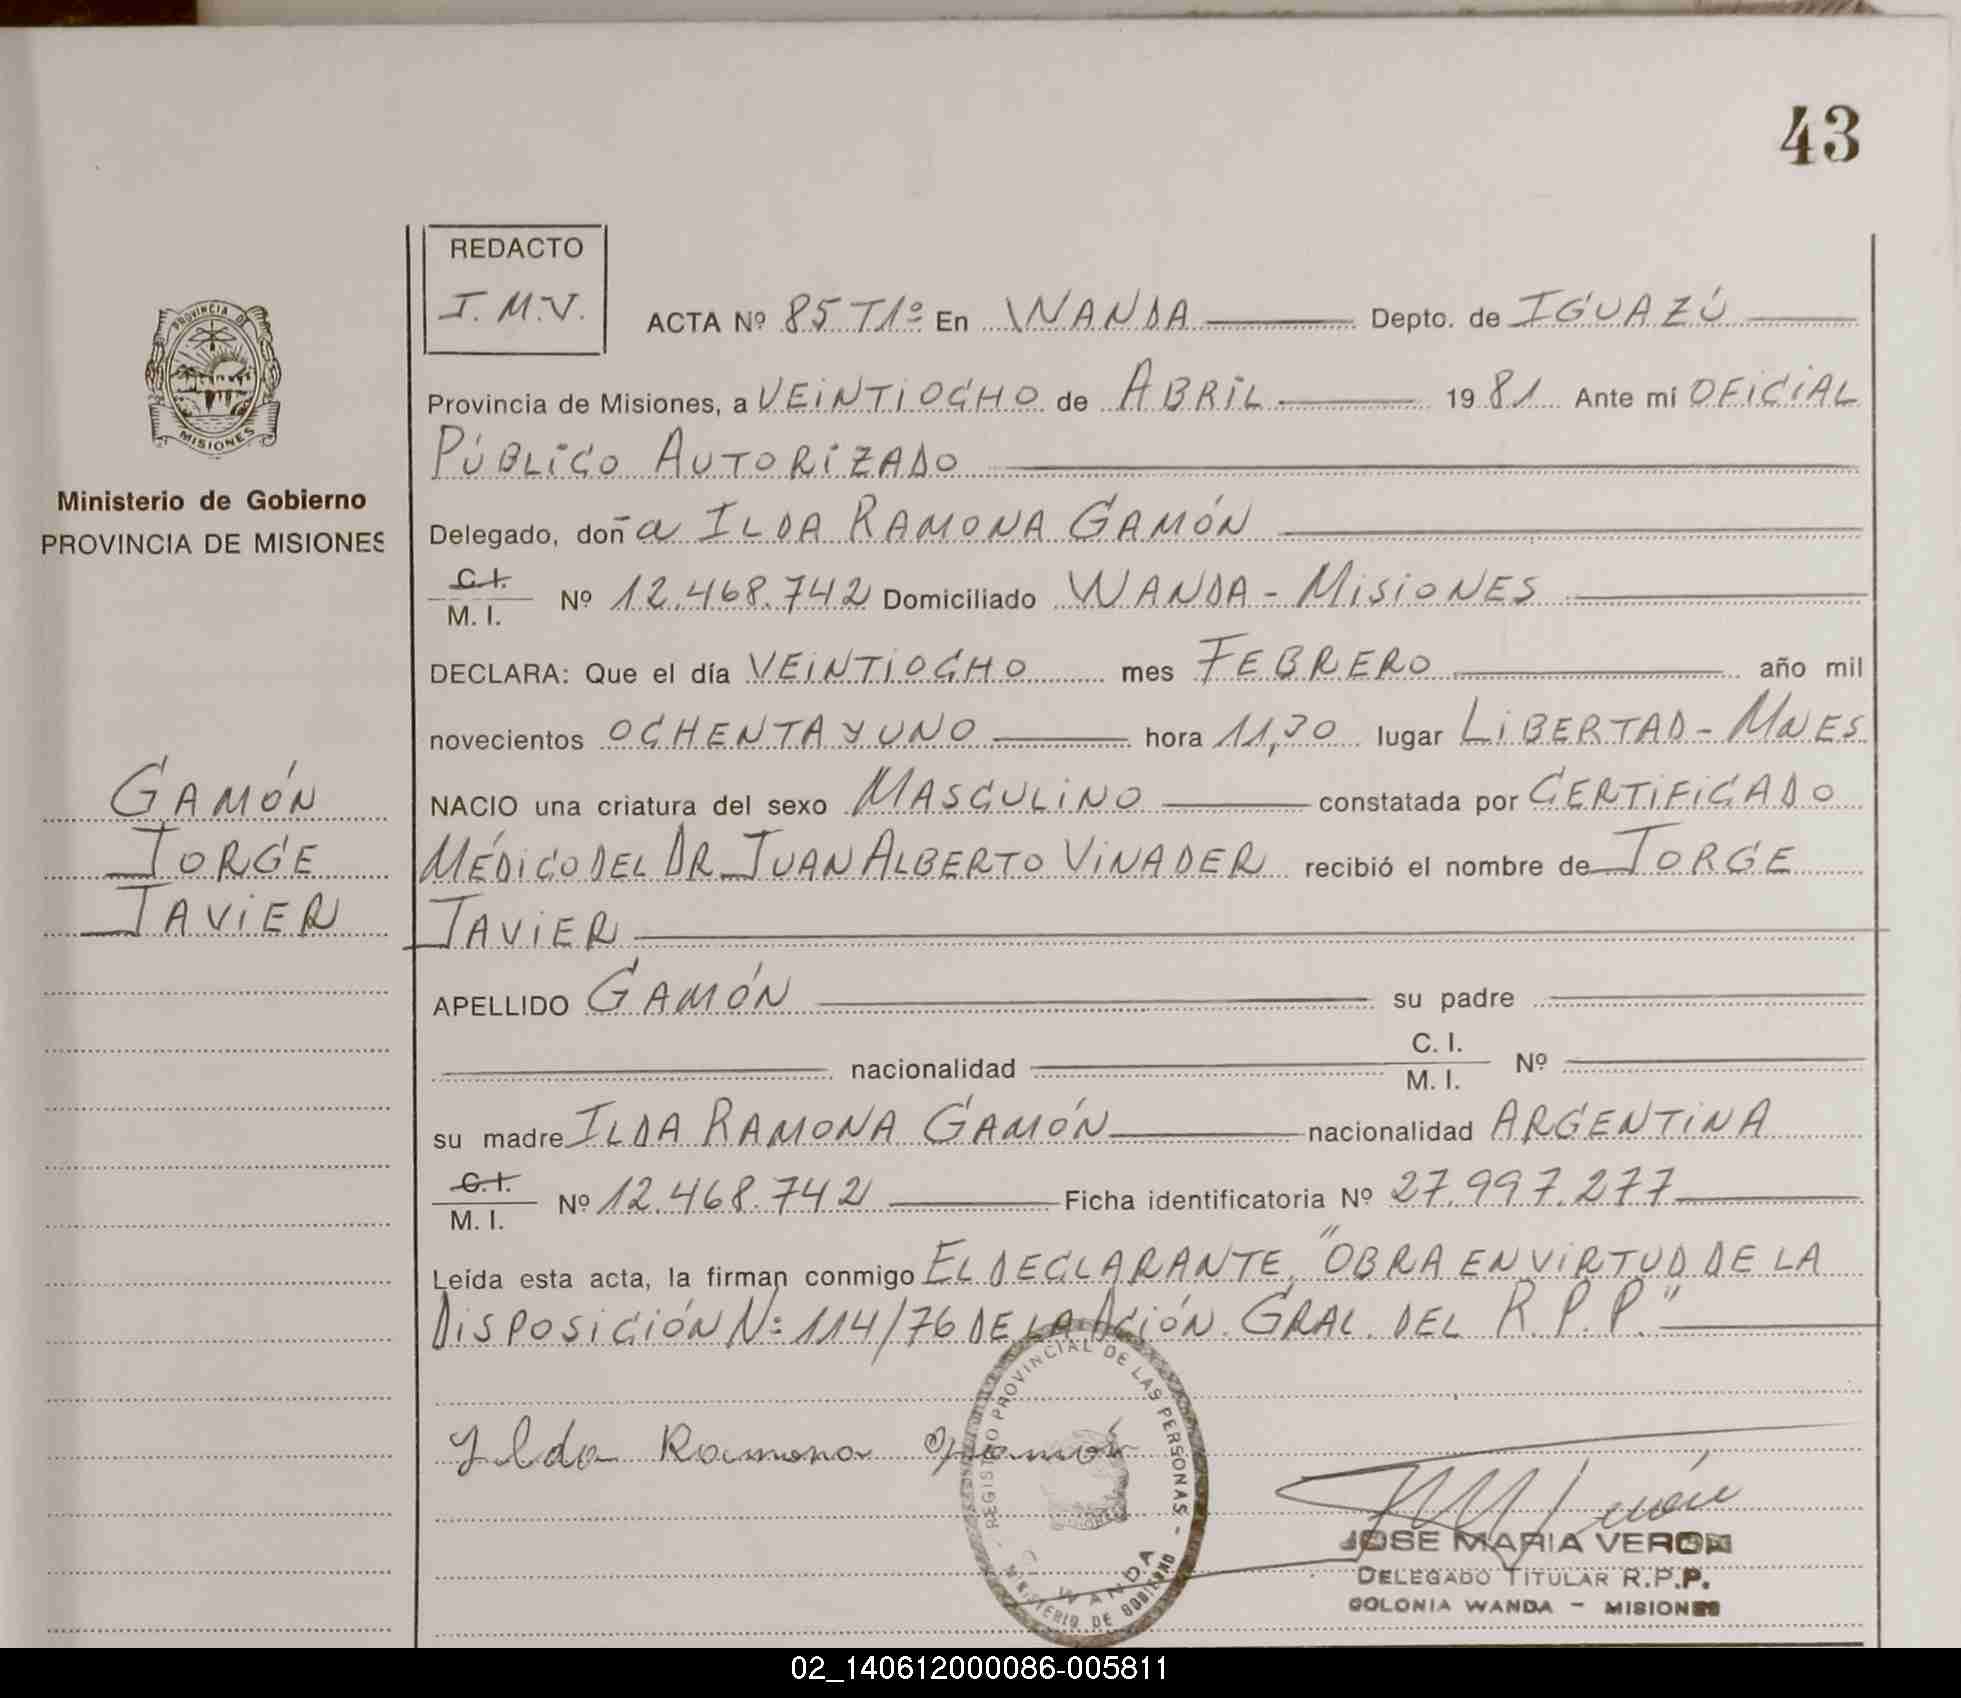 43
REDACTO
J.M.V.
ACTA Nº 85 T1º En WANDA Depto. de IGUAZÚ
PROVINCIA DE
MISIONES
Provincia de Misiones, a VEINTIOCHO de ABRIL 1981 Ante mí OFICIAL
PÚBLICO AUTORIZADO
Ministerio de Gobierno
PROVINCIA DE MISIONES
Delegado, doña ILDA RAMONA GAMÓN
C.I.
M. I. Nº 12.468.742 Domiciliado WANDA - MISIONES
DECLARA: Que el día VEINTIOCHO mes FEBRERO año mil
novecientos OCHENTA Y UNO hora 11,30 lugar LIBERTAD - MNES
GAMÓN
JORGE
JAVIER
NACIO una criatura del sexo MASCULINO constatada por CERTIFICADO
MÉDICO DEL DR. JUAN ALBERTO VINADER recibió el nombre de JORGE
JAVIER
APELLIDO GAMÓN su padre
nacionalidad C. I.
M. I. Nº
su madre ILDA RAMONA GAMÓN nacionalidad ARGENTINA
C.I.
M. I. Nº 12.468.742 Ficha identificatoria Nº 27.997.277
Leída esta acta, la firman conmigo EL DECLARANTE, "OBRA EN VIRTUD DE LA
DISPOSICIÓN Nº 114/76 DE LA DCIÓN. GRAL. DEL R.P.P."
Ilda Ramona Gamón
REGISTRO PROVINCIAL DE LAS PERSONAS -
WANDA
MINISTERIO DE GOBIERNO
JOSE MARIA VERON
DELEGADO TITULAR R.P.P.
COLONIA WANDA - MISIONES
02_140612000086-005811